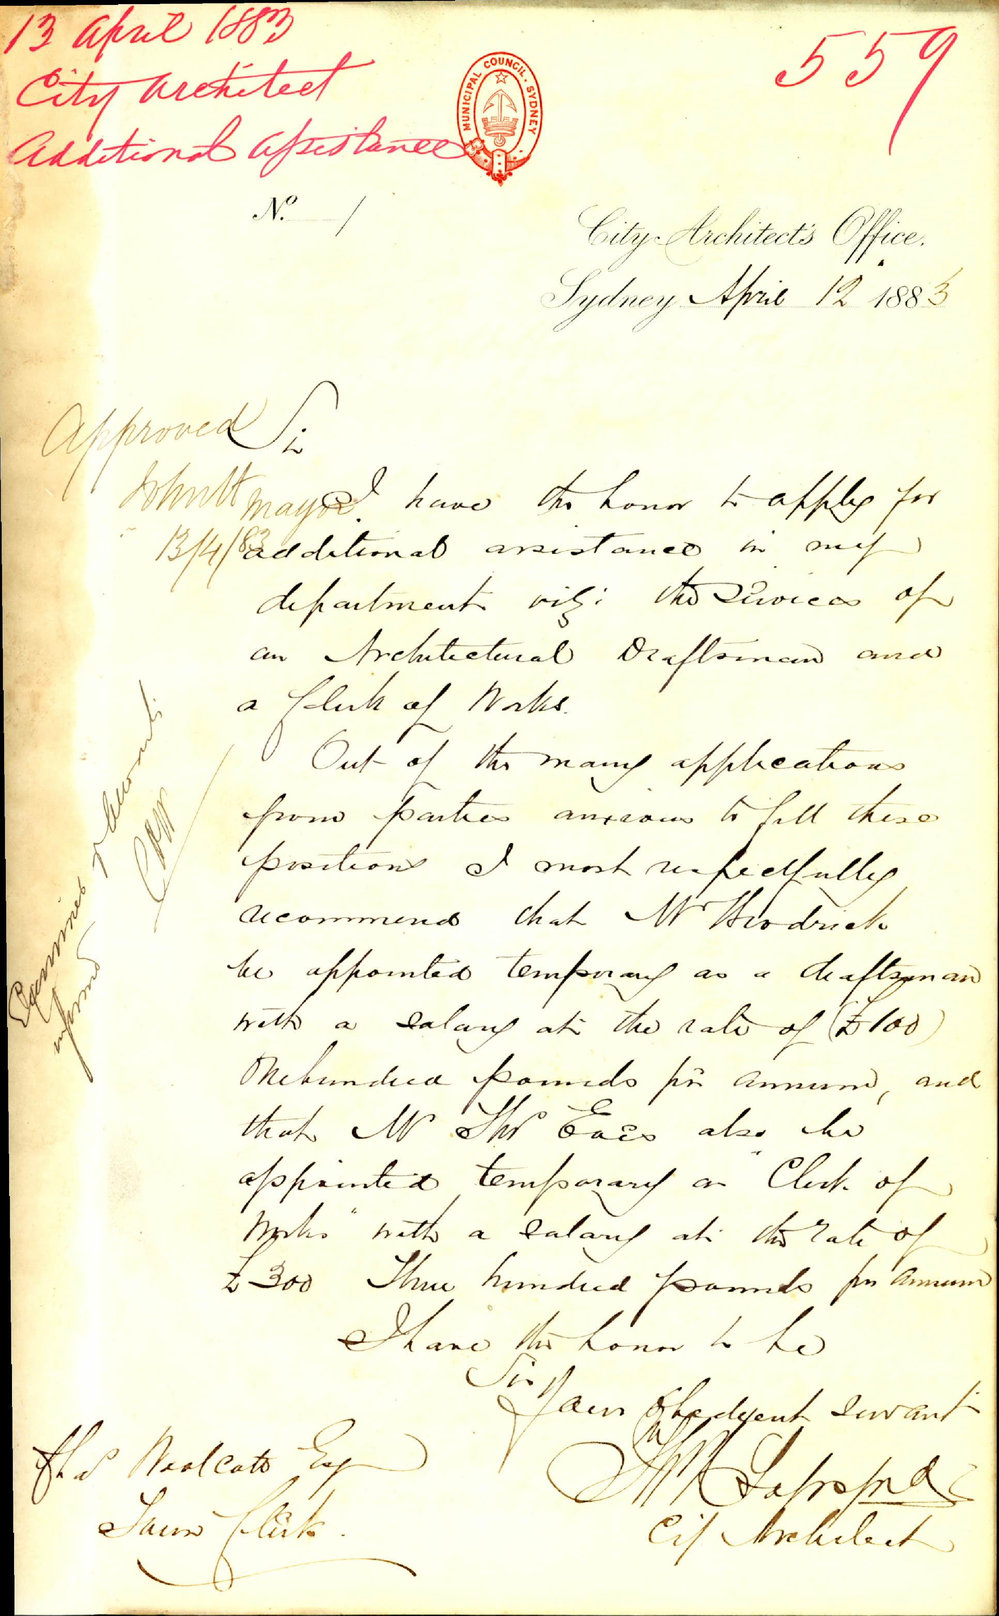 13 April 1883
City Architect
Additional Assistance
559
MUNICIPAL COUNCIL. SYDNEY
No. 1
City Architect's Office.
Sydney April 12 1883
Approved
Mayor
13/4/83
Sir
I have the honor to apply for
additional assistance in my
department viz: the services of
an Architectural Draftsman and
a Clerk of Works.
Out of the many applications
from parties anxious to fill these
positions I most respectfully
recommend that Mr
be appointed temporary as a draftsman
with a salary at the rate of (£100)
One hundred pounds per annum, and
that Mr Thos Eves also be
appointed temporary as "Clerk of
Works" with a salary at the rate of
£300 Three hundred pounds per annum
I have the honor to be
Sir
Your obedyent servant
City Architect
Thos Woolcott Esq
Town Clerk.
Examined
informed